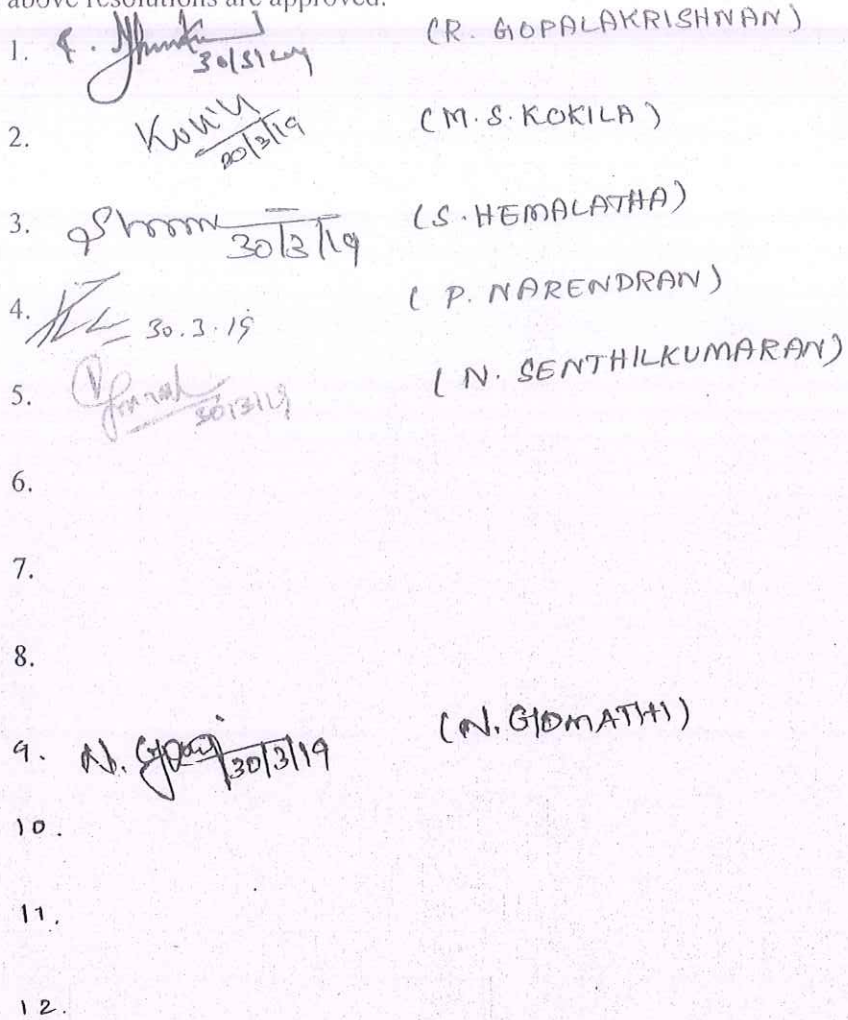 above resolutions are approved.
1. 30/3/19 (R. GOPALAKRISHNAN)
2. 30/3/19 (M.S. KOKILA)
3. 30/3/19 (S. HEMALATHA)
4. 30.3.19 (P. NARENDRAN)
5. 30/3/19 (N. SENTHILKUMARAN)
6.
7.
8.
9. N. 30/3/19 (N. GOMATHI)
10.
11.
12.